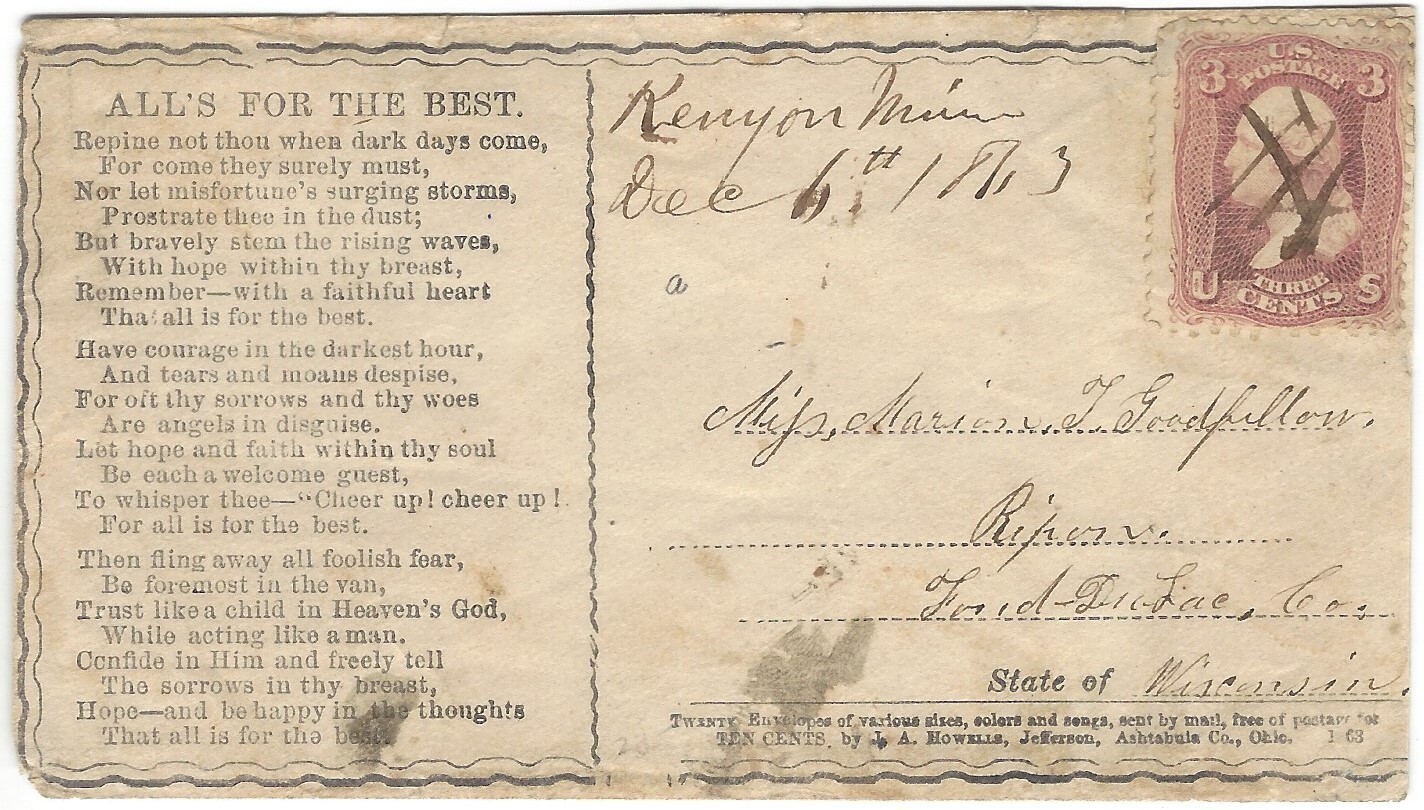 ALL'S FOR THE BEST.
Repine not thou when dark days come,
For come they surely must,
Nor let misfortune's surging storms,
Prostrate thee in the dust;
But bravely stem the rising waves,
With hope within thy breast,
Remember—with a faithful heart
That all is for the best.
Have courage in the darkest hour,
And tears and moans despise,
For oft thy sorrows and thy woes
Are angels in disguise.
Let hope and faith within thy soul
Be each a welcome guest,
To whisper thee—"Cheer up! cheer up!
For all is for the best.
Then fling away all foolish fear,
Be foremost in the van,
Trust like a child in Heaven's God,
While acting like a man.
Confide in Him and freely tell
The sorrows in thy breast,
Hope—and be happy in the thoughts
That all is for the best.
Kenyon Minn
Dec 6th 1863
a
3 U.S. 3
POSTAGE
U THREE S
CENTS
Miss, Marion, T. Goodfellow.
Ripon.
Fond-Du Lac, Co,
State of Wisconsin.
TWENTY Envelopes of various sizes, colors and songs, sent by mail, free of postage for
TEN CENTS, by J. A. HOWELLS, Jefferson, Ashtabula Co., Ohio. 1 63